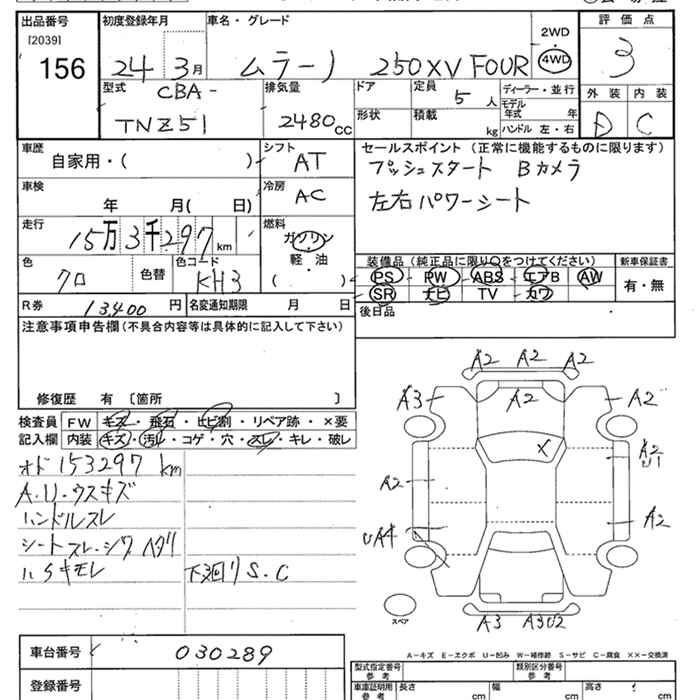 出品番号
[2039]
156
初度登録年月
24 3月
車名・グレード
ムラーノ 250XV FOUR
2WD
4WD
評価点
3
型式
CBA-
TNZ51
排気量
2480cc
ドア
形状
定員
5人
積載
kg
ディーラー・並行
モデル
年式 年
ハンドル 左・右
外装 内装
D C
車歴
自家用・( )
シフト
AT
車検
年 月( 日)
冷房
AC
走行
15万3千297km
燃料
ガソリン
・
軽・油
( )
色
クロ
色替
色コード
KH3
R券
13,400円
名変通知期限 月 日
セールスポイント(正常に機能するものに限ります)
プッシュスタート Bカメラ
左右パワーシート
装備品(純正品に限り○をつけてください)
PS PW ABS エアB AW
SR ナビ TV カワ
新車保証書
有・無
後日品
注意事項申告欄(不具合内容等は具体的に記入して下さい)
修復歴 有〔箇所 〕
検査員
記入欄
FW キズ・飛石・ヒビ割・リペア跡・×要
内装 キズ・汚れ・コゲ・穴・スレ・キレ・破レ
オド 153297km
A.U.ウスキズ
ハンドルスレ
シートスレ.シワ ヘタリ
ハSキモレ
下廻りS.C
A2 A2 A2
A3 A2 A2
X
A2
U1
A2
A2
UA4
A3 A3U2
スペア
A-キズ E-エクボ U-凹み W-補修跡 S-サビ C-腐食 XX-交換済
車台番号
030289
登録番号
型式指定番号
参考
類別区分番号
参考
車庫証明用
参考
長さ cm
幅 cm
高さ cm